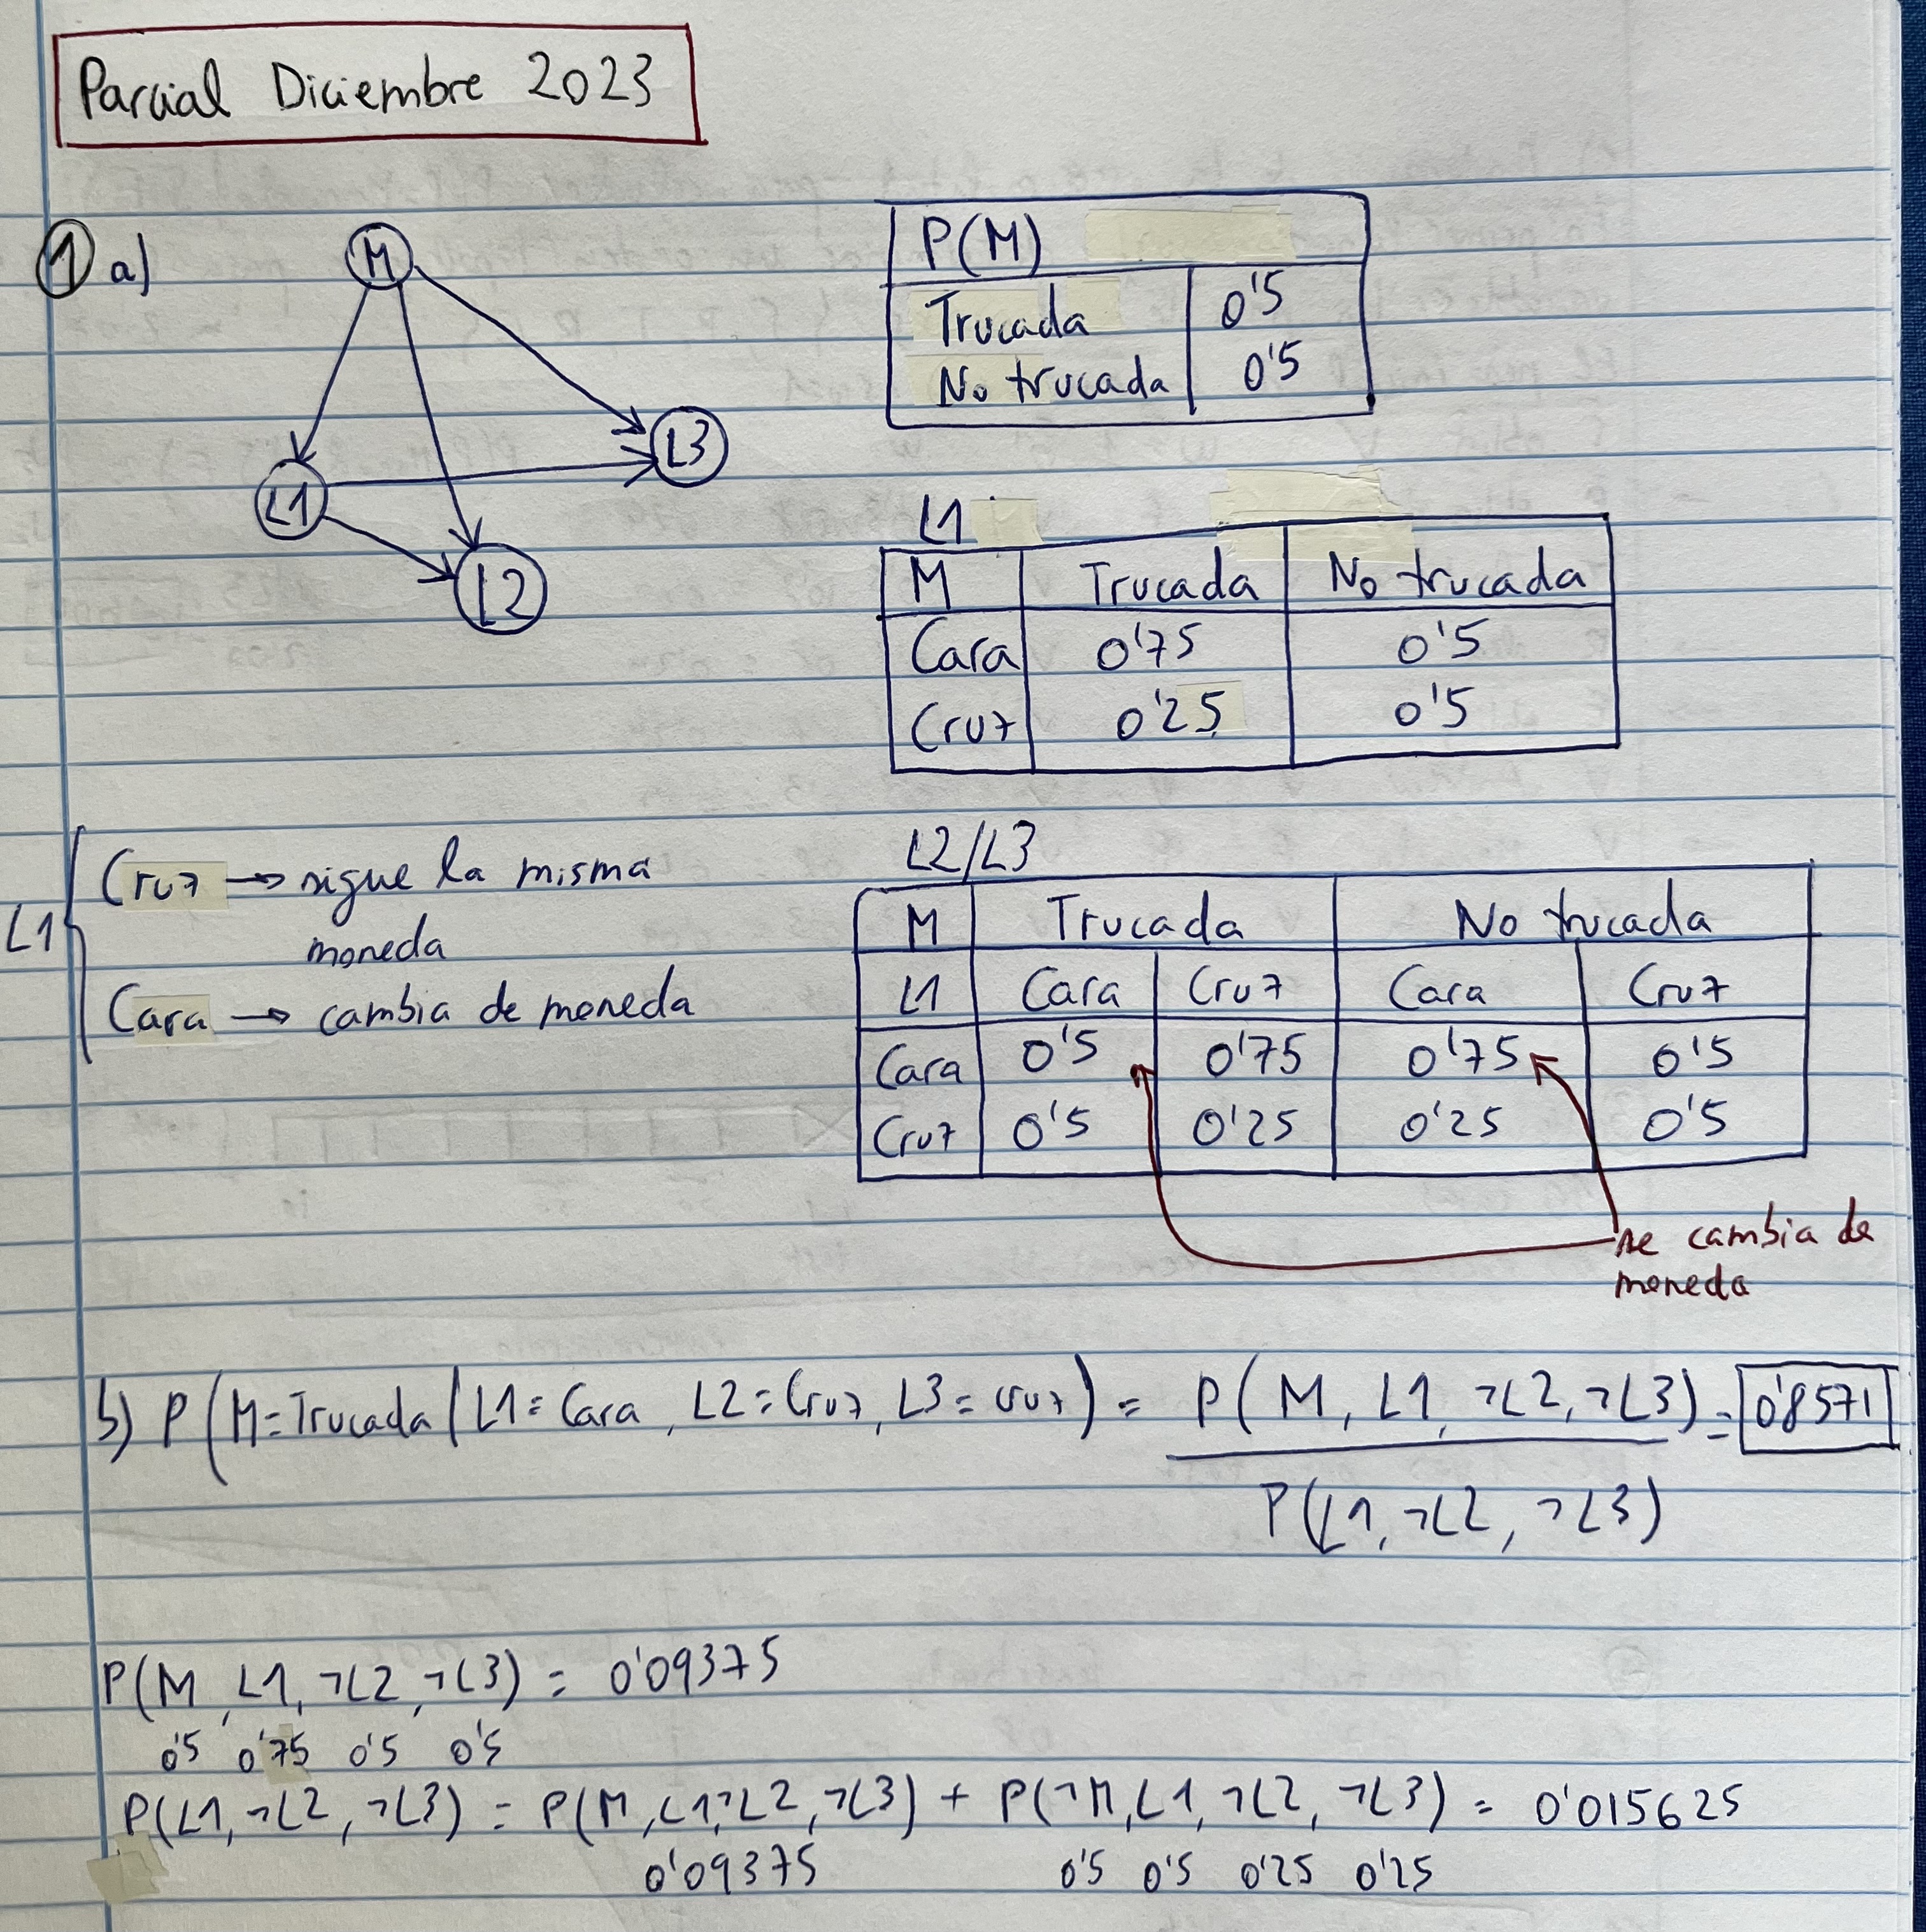 Parcial Diciembre 2023
1 a)
M
L1
L2
L3
P(M)
Trucada 0'5
No trucada 0'5
L1
M Trucada No trucada
Cara 0'75 0'5
Cruz 0'25 0'5
L1
Cruz → sigue la misma
moneda
Cara → cambia de moneda
L2/L3
M Trucada No trucada
L1 Cara Cruz Cara Cruz
Cara 0'5 0'75 0'75 0'5
Cruz 0'5 0'25 0'25 0'5
se cambia de
moneda
b) P(M=Trucada | L1=Cara, L2=Cruz, L3=cruz) = P(M, L1, ¬L2, ¬L3) = 0'8571
P(L1, ¬L2, ¬L3)
P(M, L1, ¬L2, ¬L3) = 0'09375
0'5 0'75 0'5 0'5
P(L1, ¬L2, ¬L3) = P(M, L1, ¬L2, ¬L3) + P(¬M, L1, ¬L2, ¬L3) = 0'015625
0'09375 0'5 0'5 0'25 0'25